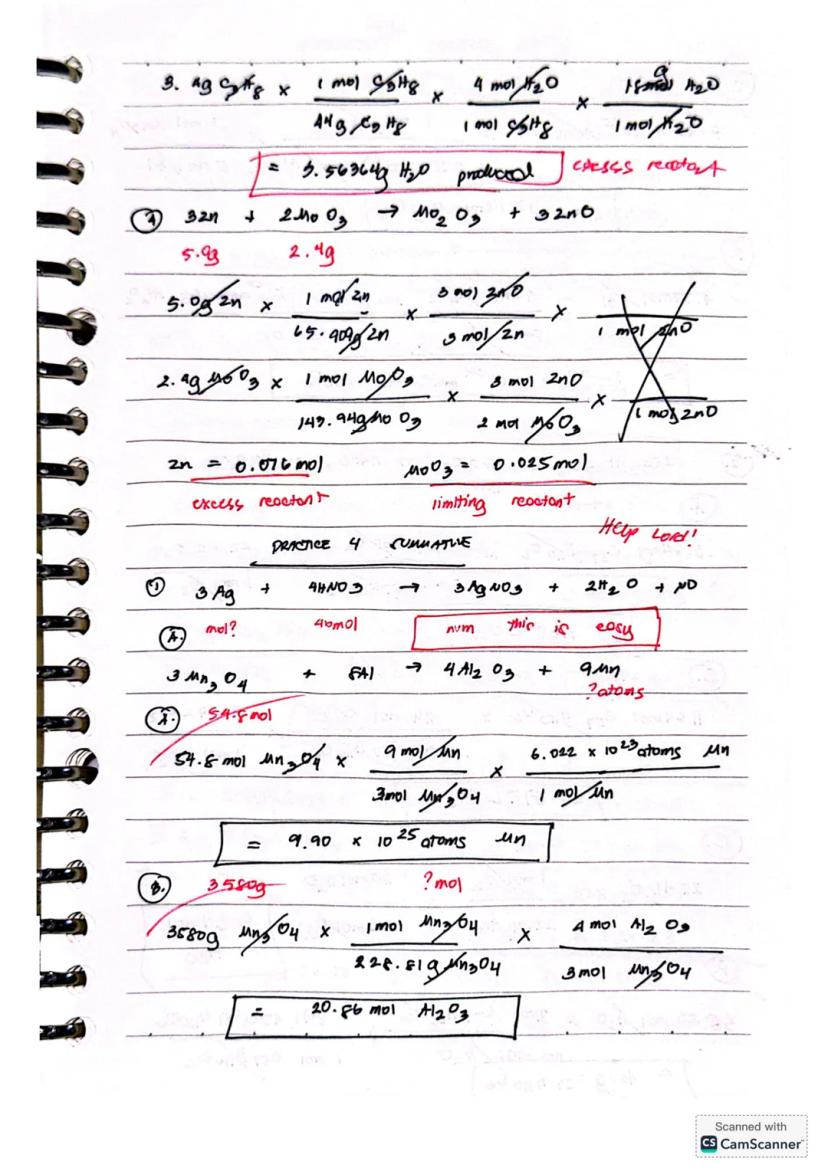 3. 4g C3H8 x 1 mol C3H8 / 44g C3H8 x 4 mol H2O / 1 mol C3H8 x 18 g H2O / 1 mol H2O
= 3.56364g H2O produced excess reactant
4 3Zn + 2MoO3 → Mo2O3 + 3ZnO
5.0g 2.4g
5.0g Zn x 1 mol Zn / 65.409g Zn x 3 mol ZnO / 3 mol Zn x / 1 mol ZnO
2.4g MoO3 x 1 mol MoO3 / 143.94g MoO3 x 3 mol ZnO / 2 mol MoO3 x / 1 mol ZnO
Zn = 0.076 mol MoO3 = 0.025 mol
excess reactant limiting reactant
Help Lord!
PRACTICE 4 SUMMATIVE
1 3Ag + 4HNO3 → 3AgNO3 + 2H2O + NO
A. mol? 40mol num this is easy
3Mn3O4 + 8Al → 4Al2O3 + 9Mn
? atoms
54.8mol
54.8 mol Mn3O4 x 9 mol Mn / 3mol Mn3O4 x 6.022 x 10^23 atoms Mn / 1 mol Mn
= 9.90 x 10^25 atoms Mn
B. 3580g ? mol
3580g Mn3O4 x 1 mol Mn3O4 / 228.81g Mn3O4 x 4 mol Al2O3 / 3 mol Mn3O4
= 20.86 mol Al2O3
Scanned with
CS CamScanner